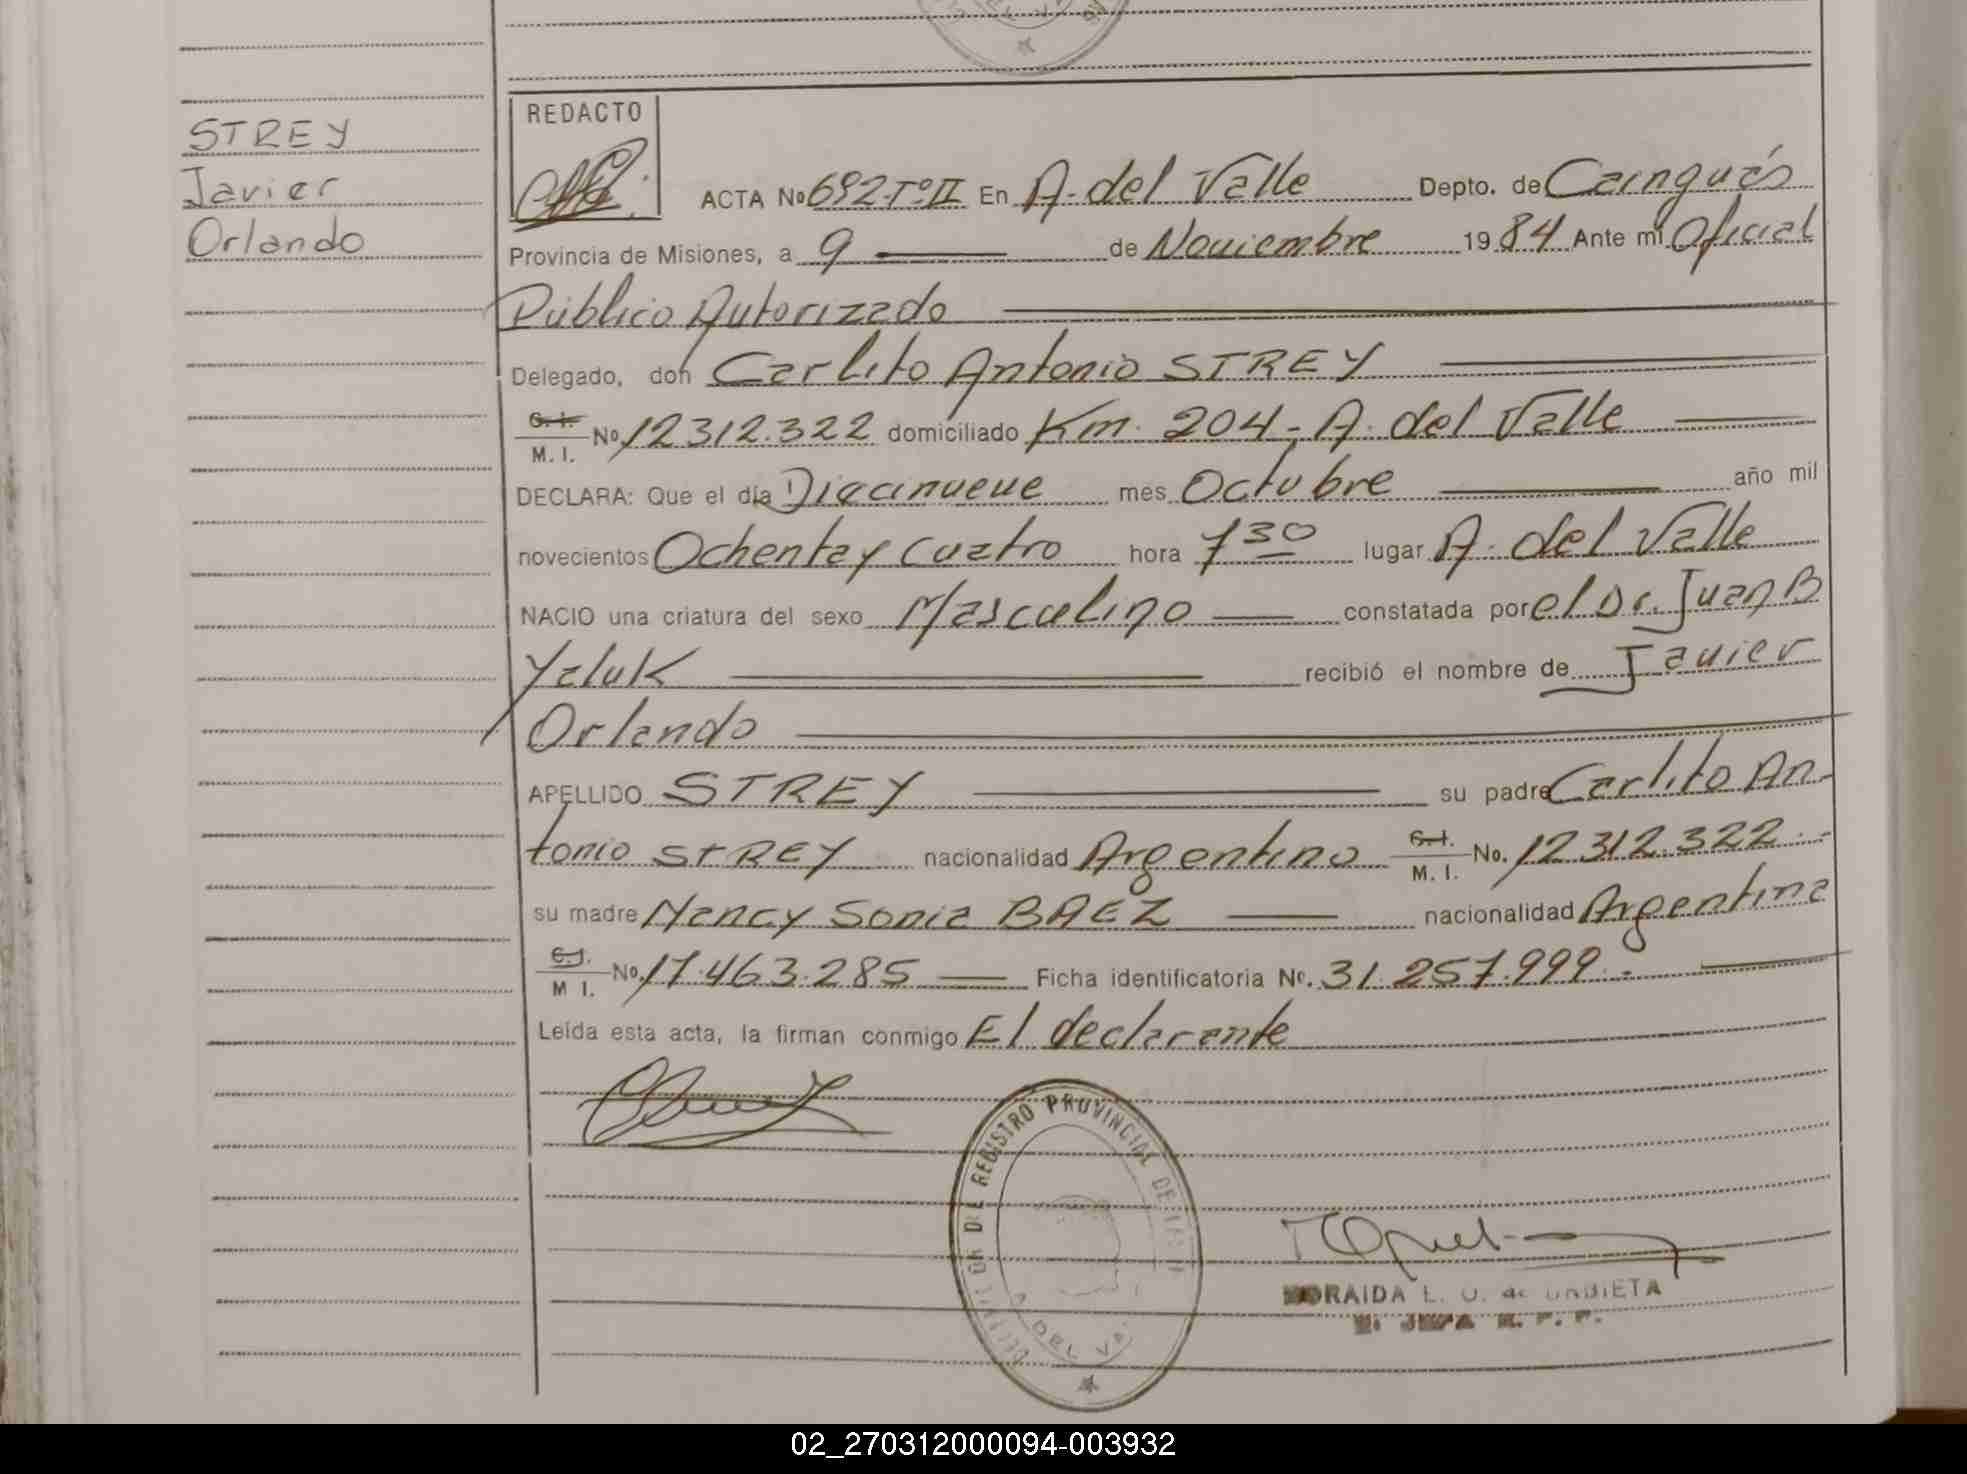 STREY
Javier
Orlando
REDACTO
ACTA No 692-Tº II En A. del Valle Depto. de Cainguás
Provincia de Misiones, a 9 de Noviembre 1984 Ante mi Oficial
Público Autorizado
Delegado, don Carlito Antonio STREY
C. I.
M. I. No 12312.322 domiciliado Km. 204 - A. del Valle
DECLARA: Que el día Diecinueve mes Octubre año mil
novecientos Ochenta y Cuatro hora 7 30 lugar A. del Valle
NACIO una criatura del sexo Masculino constatada por el Dr. Juan B
Yaluk recibió el nombre de Javier
Orlando
APELLIDO STREY su padre Carlito An-
tonio STREY nacionalidad Argentino C.I. M. I. No. 12312.322
su madre Nancy Sonia BAEZ nacionalidad Argentina
C.I. M I. No. 17.463.285 Ficha identificatoria No. 31.257.999.-
Leída esta acta, la firman conmigo El declarante
DEL REGISTRO PROVINCIAL DE LAS
A. DEL VA
ORAIDA L. O. de URBIETA
JEFA R. P. P.
02_270312000094-003932